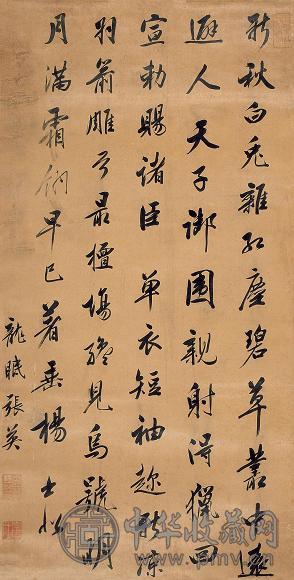 新秋白兔離紅塵碧草叢中遠
避人 天子御圍親射得獵回
宣勅賜諸臣 單衣短袖趂秋涼
羽箭雕弓最擅場纔見烏號明
月滿霜翎早已著垂楊
龍眠張英
中华收藏网